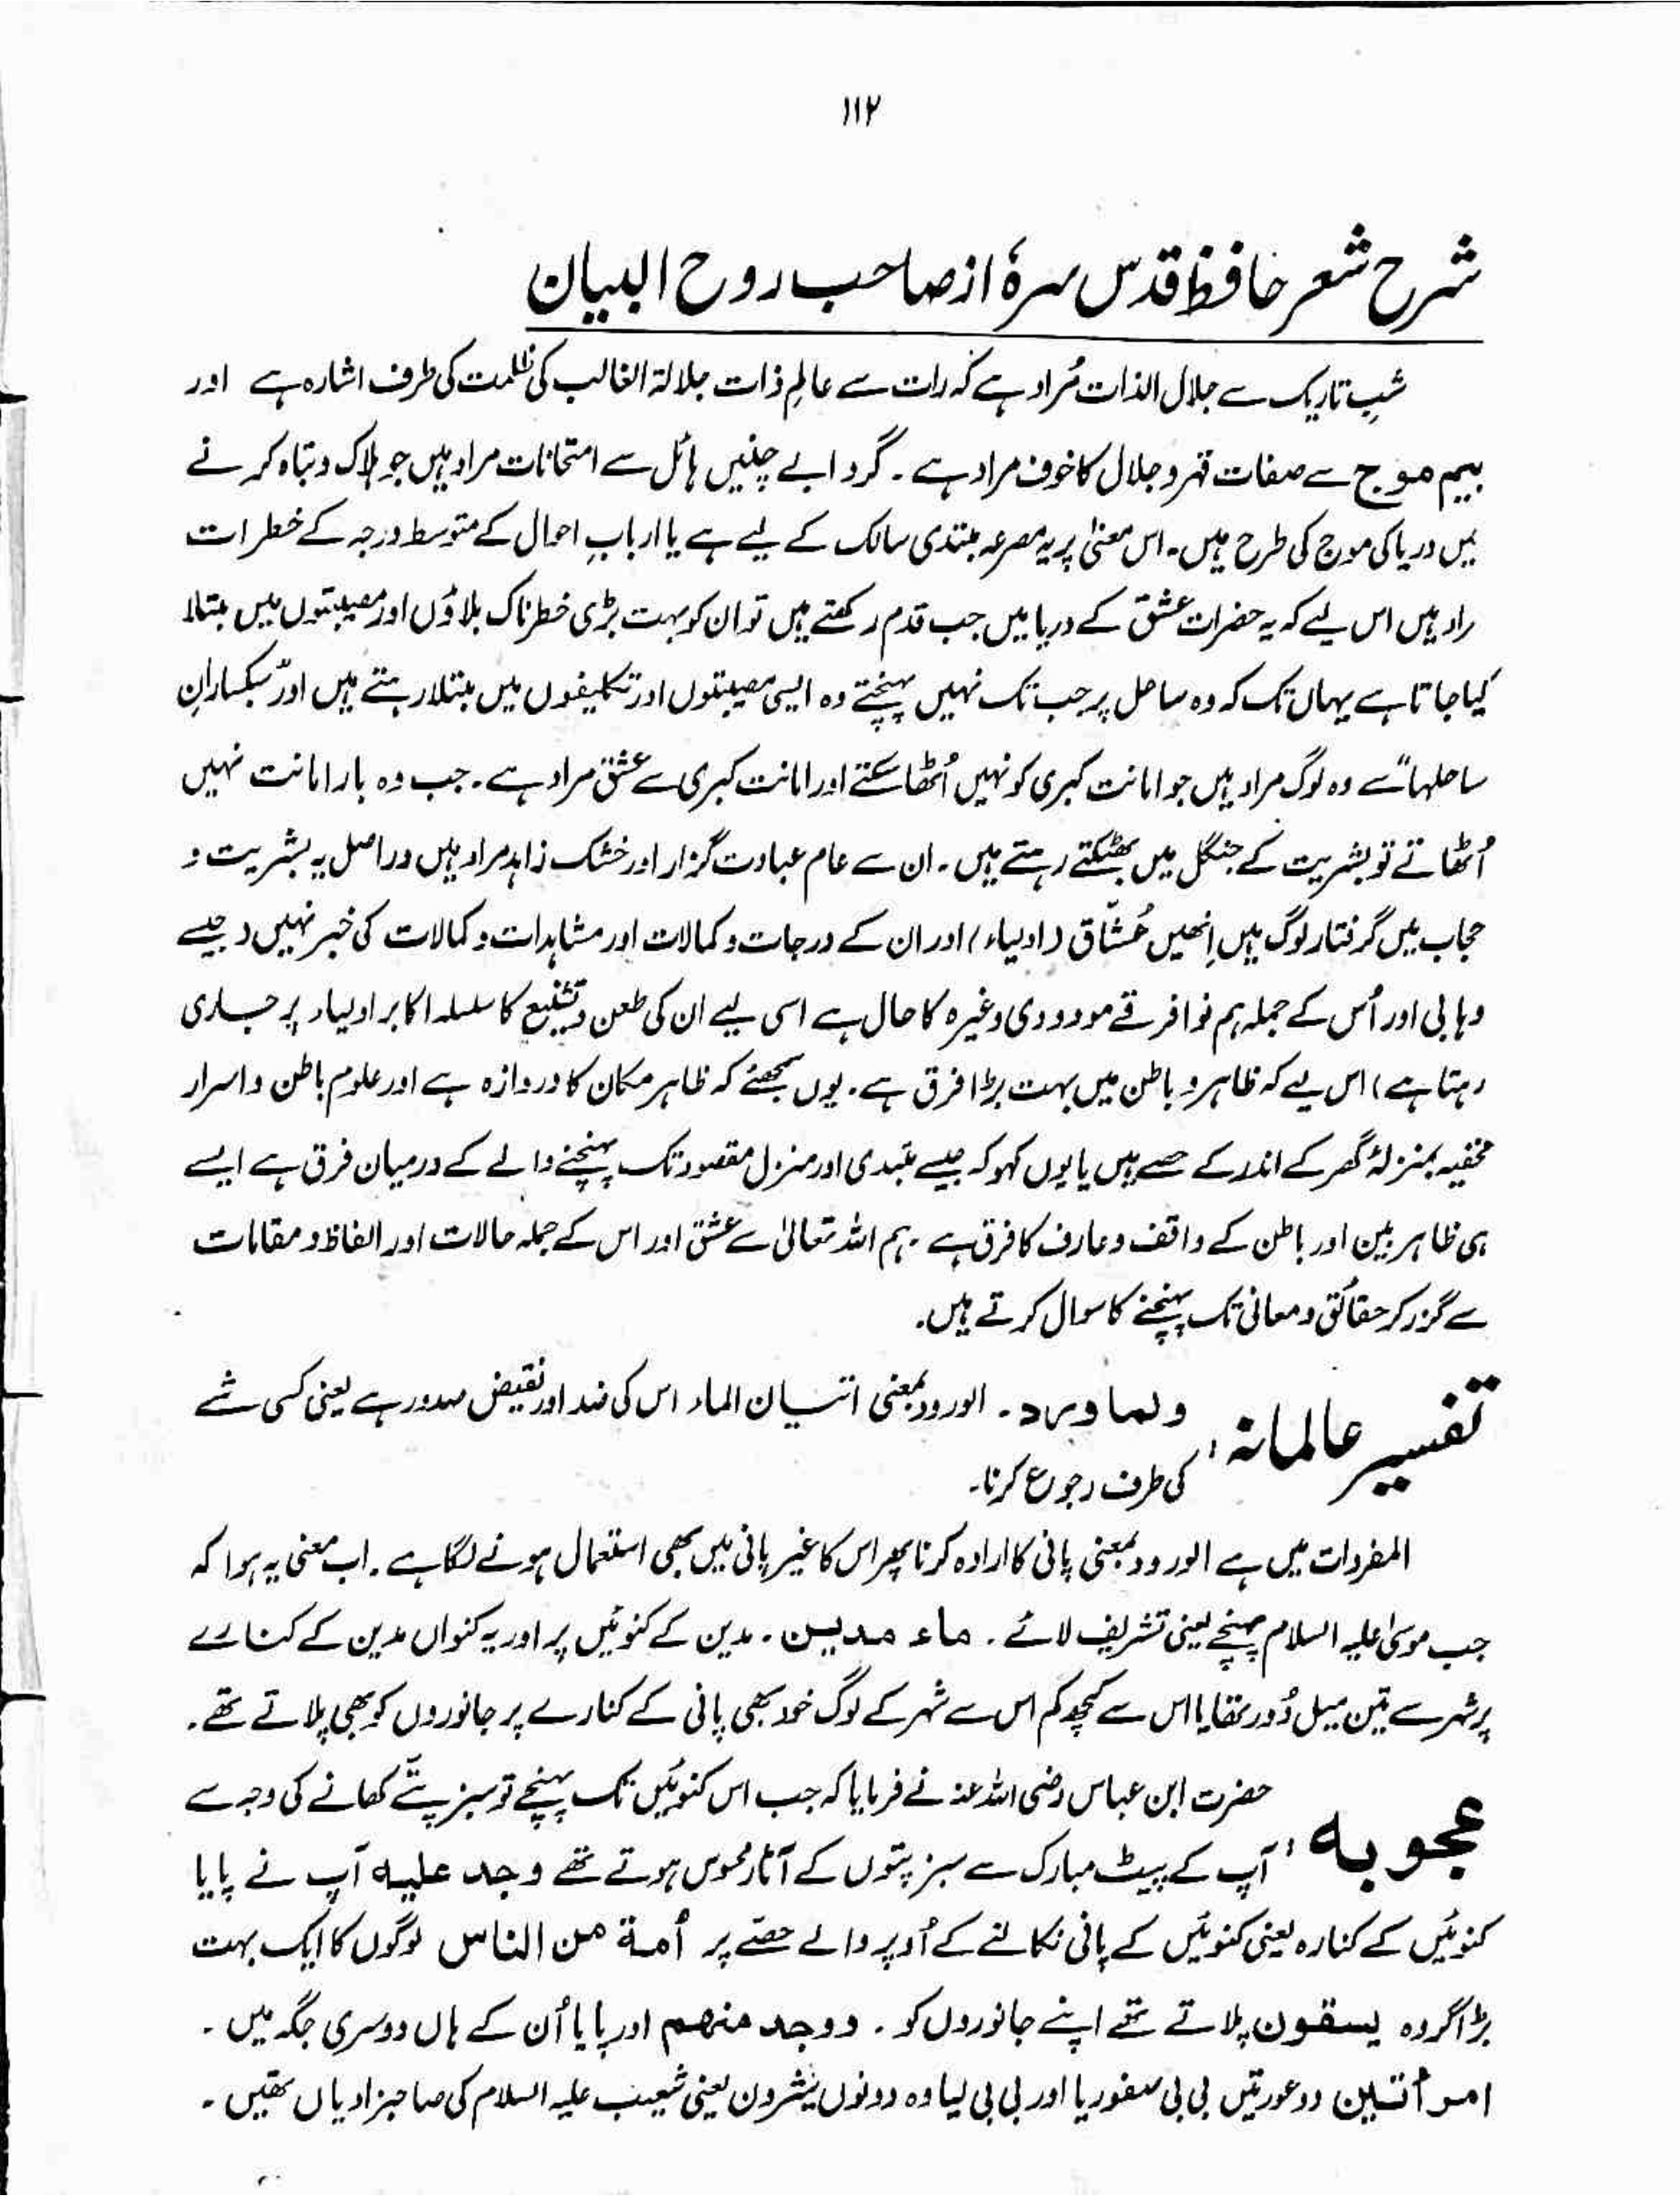 ۱۱۲
شرح شعر حافظ قدس سرہٗ از صاحب روح البیان
شبِ تاریک سے جلال الذات مُراد ہے کہ رات سے عالمِ ذات جلالۃ الغالب کی ظلمت کی طرف اشارہ ہے اور
بیم موج سے صفات قہر و جلال کا خوف مراد ہے ۔ گرد ابے چنیں ہائل سے امتحانات مراد ہیں جو ہلاک و تباہ کرنے
میں دریا کی موج کی طرح ہیں ۔ اس معنیٰ پر یہ مصرعہ مبتدی سالک کے لیے ہے یا اربابِ احوال کے متوسط درجہ کے خطرات
راد ہیں اس لیے کہ یہ حضرات عشق کے دریا میں جب قدم رکھتے ہیں تو ان کو بہت بڑی خطرناک بلاؤں اور مصیبتوں میں مبتلا
کیا جاتا ہے یہاں تک کہ وہ ساحل پر جب تک نہیں پہنچتے وہ ایسی مصیبتوں اور تکلیفوں میں مبتلا رہتے ہیں اور ”سبکسارانِ
ساحلہا“ سے وہ لوگ مراد ہیں جو امانت کبریٰ کو نہیں اُٹھا سکتے اور امانت کبریٰ سے عشق مراد ہے ۔ جب وہ بار امانت نہیں
اُٹھاتے تو بشریت کے جنگل میں بھٹکتے رہتے ہیں ۔ ان سے عام عبادت گزار اور خشک زاہد مراد ہیں دراصل یہ بشریت و
حجاب میں گرفتار لوگ ہیں اِنھیں عُشّاق (اولیاء) اور ان کے درجات و کمالات اور مشاہدات و کمالات کی خبر نہیں (جیسے
وہابی اور اُس کے جملہ ہم نوا فرقے مودودی وغیرہ کا حال ہے اسی لیے ان کی طعن و تشنیع کا سلسلہ اکابر اولیاء پر جاری
رہتا ہے) اس لیے کہ ظاہر و باطن میں بہت بڑا فرق ہے ۔ یوں سمجھئے کہ ظاہر مکان کا دروازہ ہے اور علوم باطن و اسرار
مخفیہ بمنزلۂ گھر کے اندر کے حصے ہیں یا یوں کہو کہ جیسے مبتدی اور منزل مقصود تک پہنچنے والے کے درمیان فرق ہے ایسے
ہی ظاہر بین اور باطن کے واقف و عارف کا فرق ہے ۔ ہم اللہ تعالیٰ سے عشق اور اس کے جملہ حالات اور الفاظ و مقامات
سے گزر کر حقائق و معانی تک پہنچنے کا سوال کرتے ہیں ۔
تفسیر عالمانہ : ولما ورد ۔ الورود بمعنی اتسیان الماء اس کی ضد اور نقیض صدور ہے یعنی کسی شے
کی طرف رجوع کرنا ۔
المفردات میں ہے الورود بمعنی پانی کا ارادہ کرنا پھر اس کا غیر پانی میں بھی استعمال ہونے لگا ہے ۔ اب معنی یہ ہوا کہ
جب موسیٰ علیہ السلام پہنچے یعنی تشریف لائے ۔ ماء مدین ۔ مدین کے کنوئیں پر اور یہ کنواں مدین کے کنارے
پر شہر سے تین میل دُور تھا یا اس سے کچھ کم اس سے شہر کے لوگ خود بھی پانی کے کنارے پر جانوروں کو بھی پلاتے تھے ۔
عجوبہ : حضرت ابن عباس رضی اللہ عنہ نے فرمایا کہ جب اس کنوئیں تک پہنچے تو سبز پتّے کھانے کی وجہ سے
آپ کے پیٹ مبارک سے سبز پتوں کے آثار محسوس ہوتے تھے وجد علیہ آپ نے پایا
کنوئیں کے کنارہ یعنی کنوئیں کے پانی نکالنے کے اُوپر والے حصّے پر اُمة من الناس لوگوں کا ایک بہت
بڑا گروہ یسقون پلاتے تھے اپنے جانوروں کو ۔ ووجد منھم اور پایا اُن کے ہاں دوسری جگہ میں ۔
امرأتین دو عورتیں بی بی صفوریا اور بی بی لیا وہ دونوں یثرون یعنی شعیب علیہ السلام کی صاحبزادیاں تھیں ۔